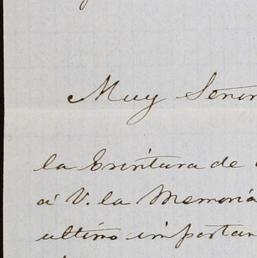 Muy Señor
la Escritura de
á V. la Memoria
ultimo importan